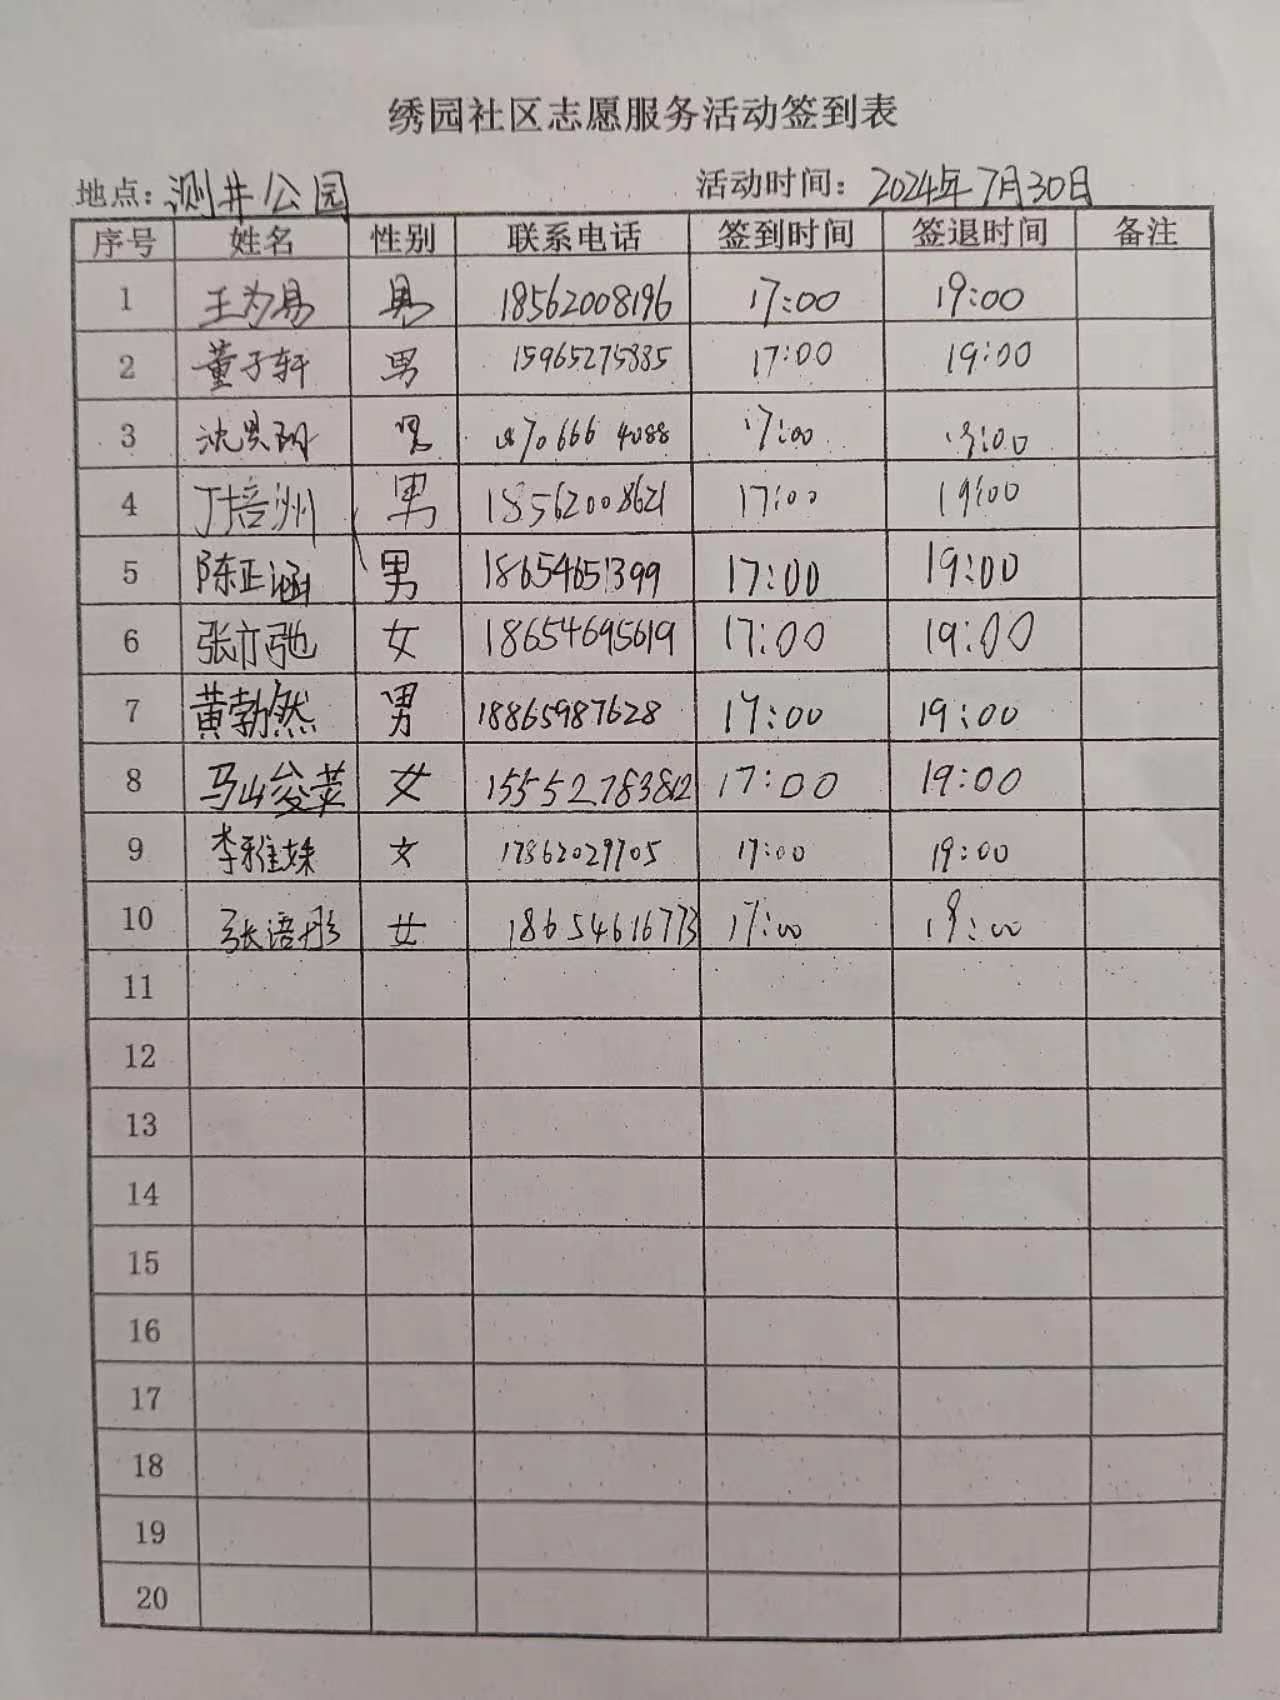 绣园社区志愿服务活动签到表
地点：测井公园 活动时间：2024年7月30日
序号 姓名 性别 联系电话 签到时间 签退时间 备注
1 王为易 男 18562008196 17:00 19:00
2 董子轩 男 15965275835 17:00 19:00
3 男 17:00 19:00
4 丁培洲 男 18562008621 17:00 19:00
5 陈正涵 男 18654651399 17:00 19:00
6 张亦弛 女 18654695619 17:00 19:00
7 黄勃然 男 18865987628 17:00 19:00
8 女 15552783812 17:00 19:00
9 李雅姝 女 17862029705 17:00 19:00
10 张语彤 女 18654616773 17:00 19:00
11
12
13
14
15
16
17
18
19
20